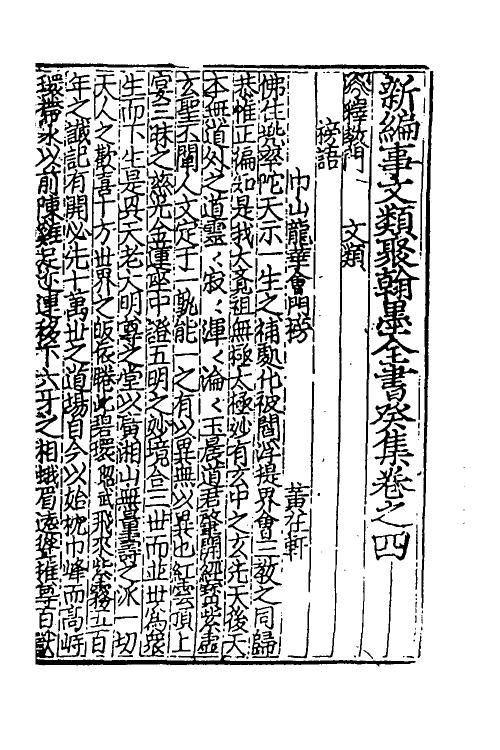 新編事文類聚翰墨全書癸集卷之四
釋教門　文類
榜語
巾山龍華會門榜　黃在軒
佛住兜率陀天示一生之補馭化被閻浮提界會三教之同歸
恭惟正徧知是我大竟祖無極太極妙有玄中之玄先天後天
本無道外之道靈〻寂〻渾〻淪〻玉晨道君肇開經寶紫虛
玄聖丕闡人文定于一孰能一之有以異無以異也紅雲頂上
冥三昧之慈光金蓮座中證五明之妙境合三世而並世為眾
生而下生是與天老大明尊之堂以廣湘山無量壽之派一切
天人之歡喜十方世界之皈依睠此碧環昭武飛來紫霧五百
年之讖記有開必先十萬世之道場自今以始枕巾峰而高峙
環帶水以前陳雞足近連移下六牙之相蛾眉遠從推尊百獸